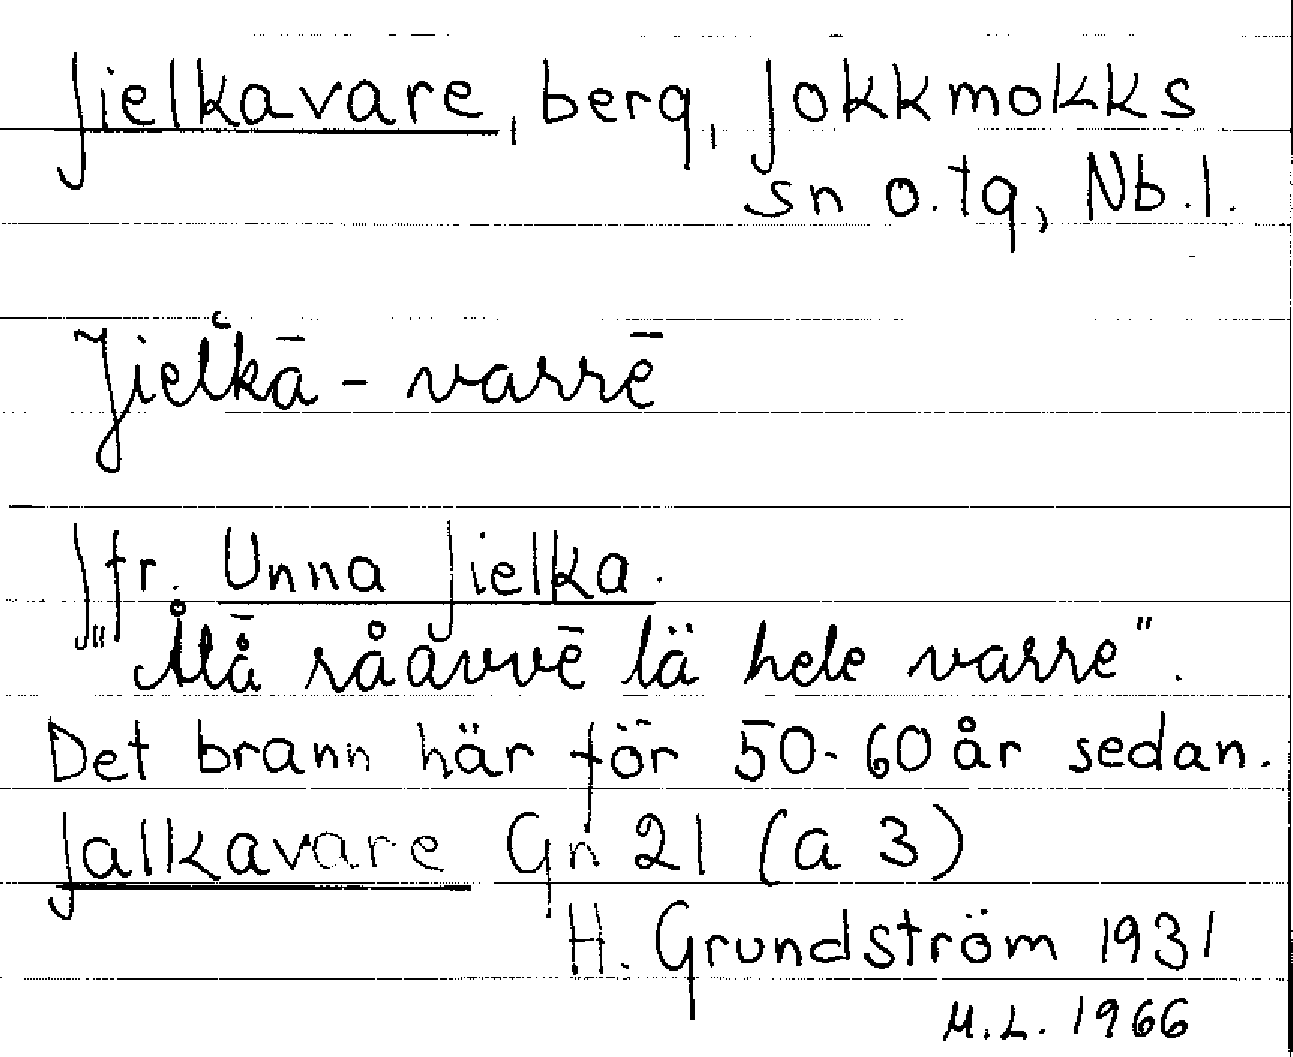 Jielkavare, berg, Jokkmokks
sn o. tg, Nb. l.
Jielʻkā-varrē
Jfr. Unna Jielka.
"Ålā̊ råavvē lä hele varre".
Det brann här för 50-60 år sedan.
Jalkavare Gn 21 (a 3)
H. Grundström 1931
M.L. 1966